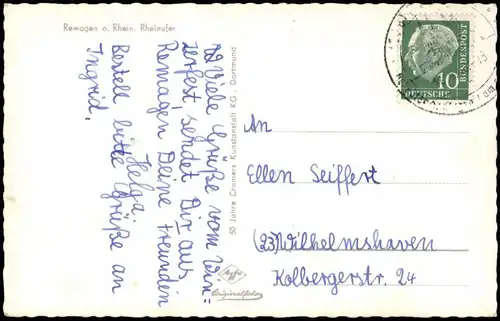 Remagen a. Rhein. Rheinufer
Viele Grüße vom Win-
zerfest, sendet Dir aus
Remagen Deine Freundin
Helga
Bestell bitte Grüße an
Ingrid.
50 Jahre Cramers Kunstanstalt KG · Dortmund
Agfa
Originalfoto
10
DEUTSCHE
BUNDESPOST
An
Ellen Seiffert
(23)Wilhelmshaven
Kolbergerstr. 24